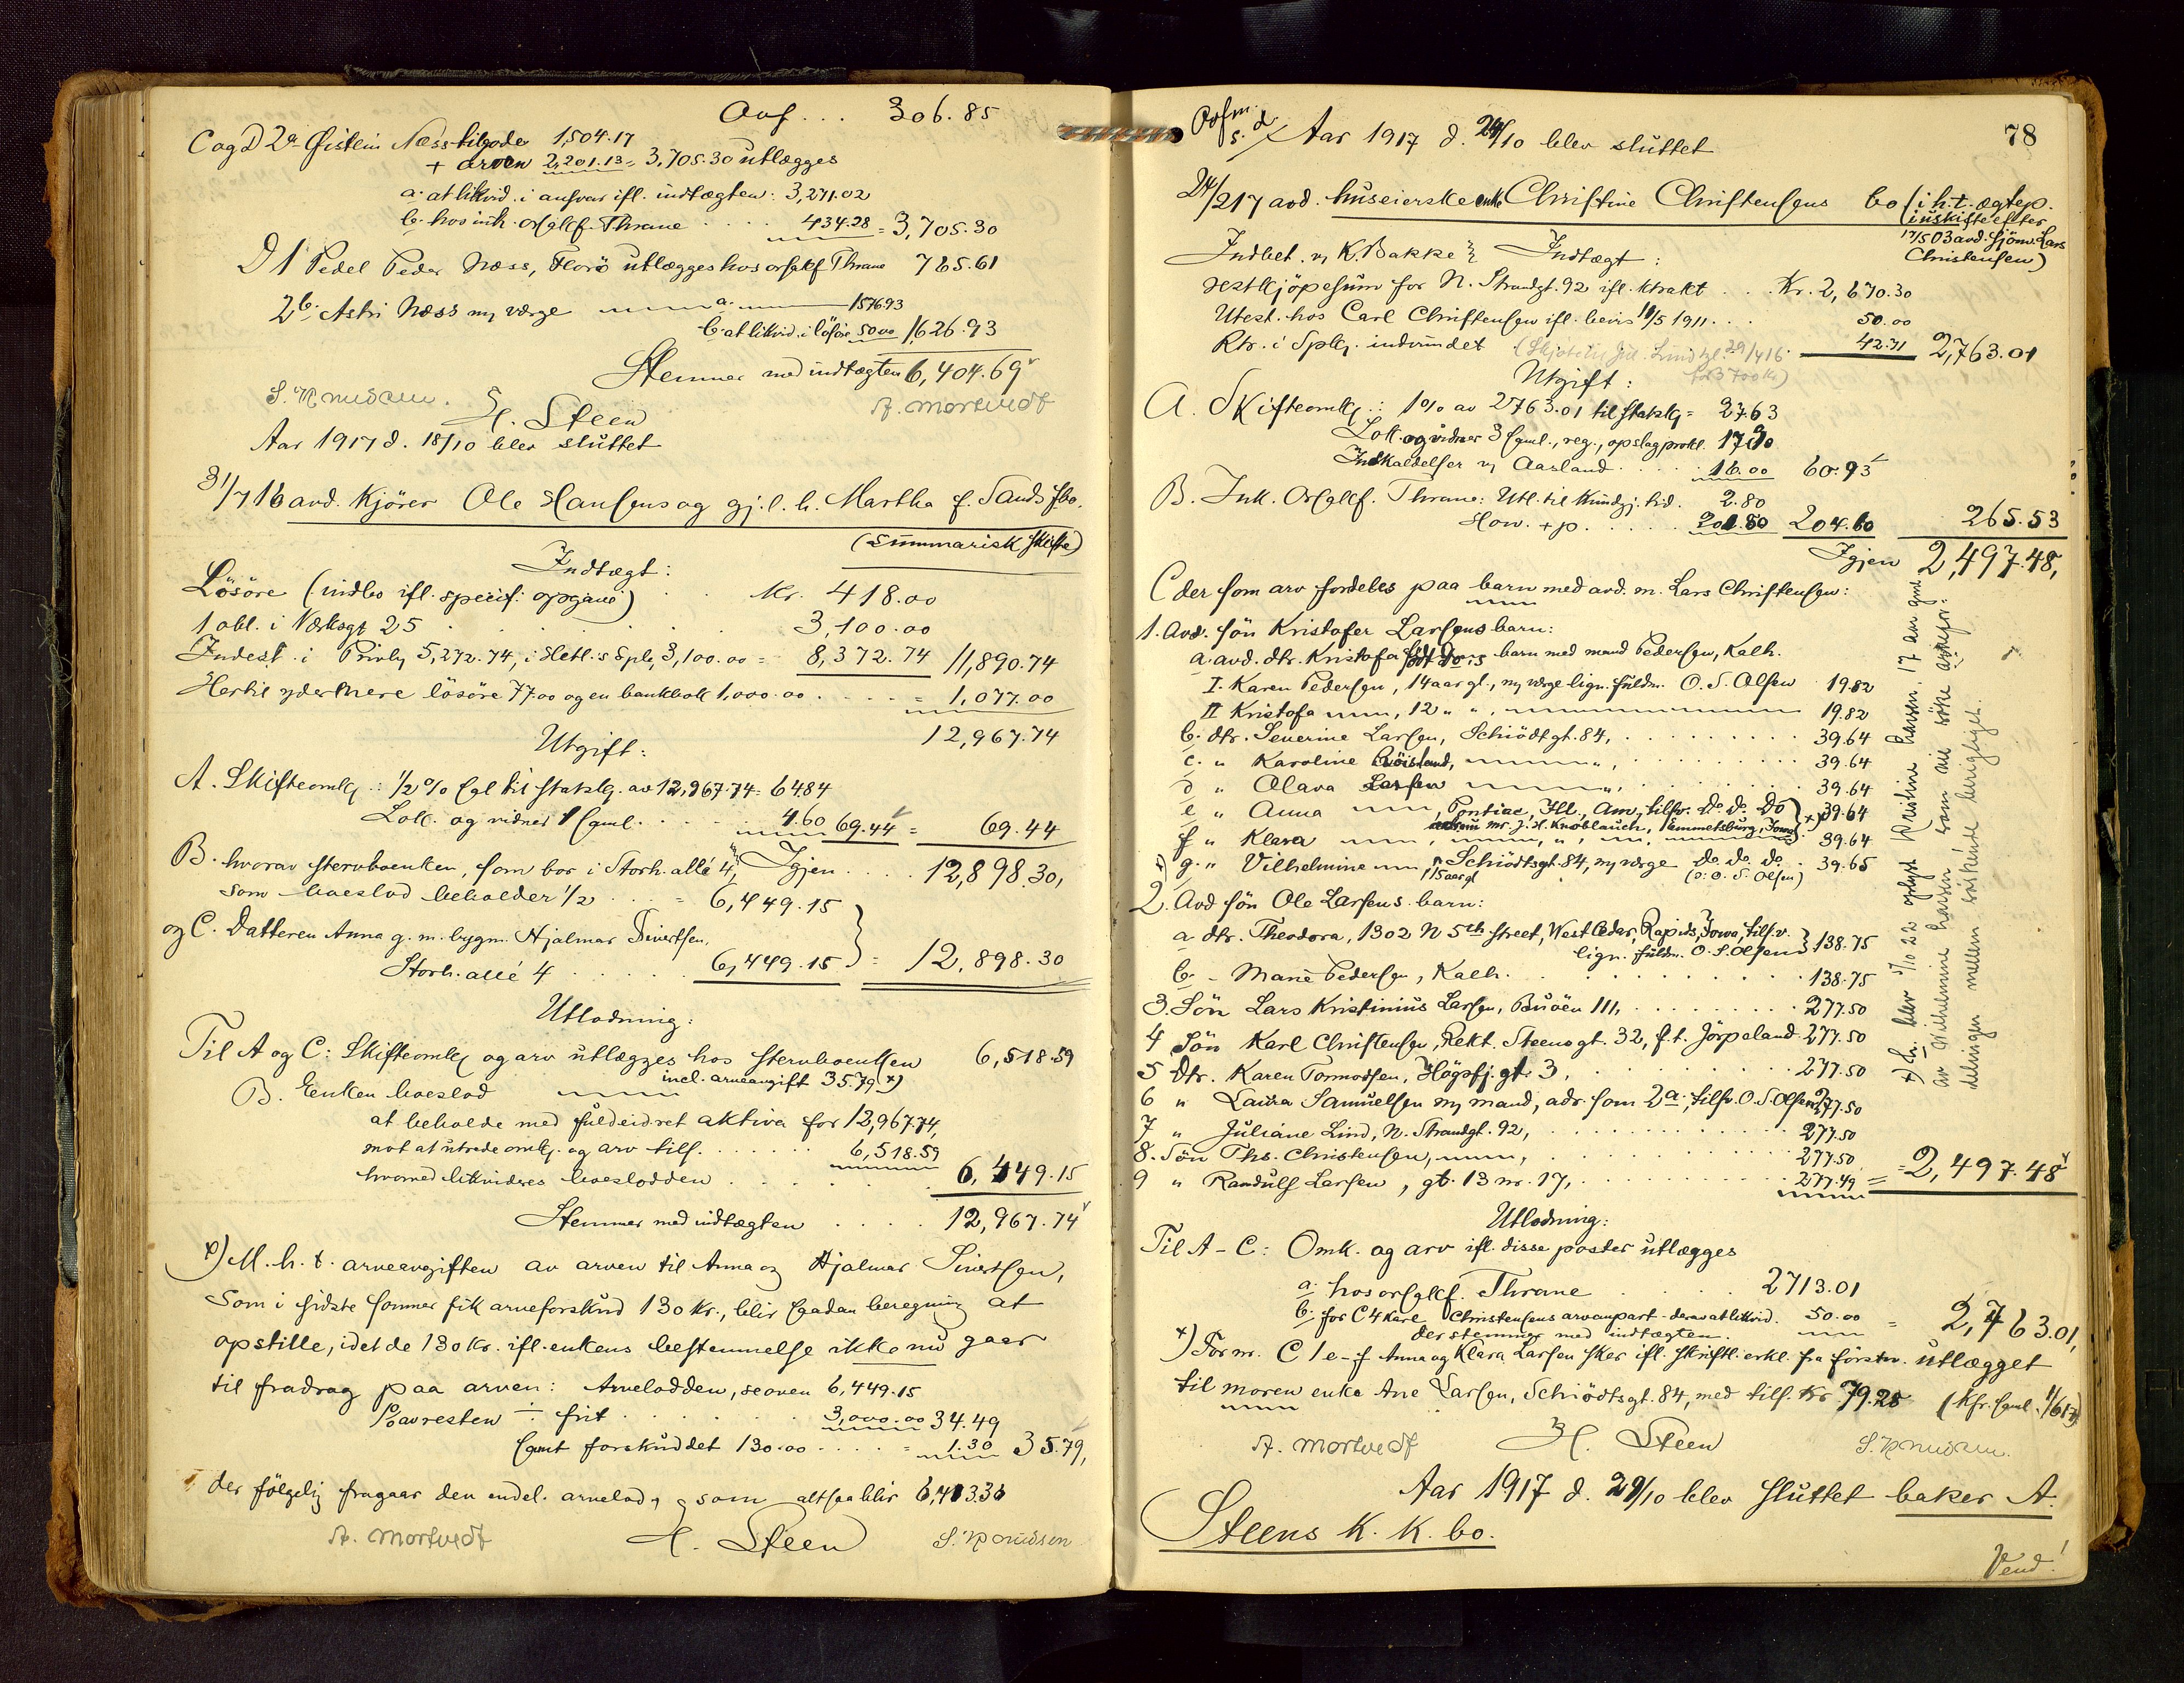 Ovf... 306.85
C og D 2a Øistein Næss tilgode 1,504.17
+ arven 2,201.13 = 3,705.30 utlægges
a. at likvid. i ansvar ifl. indtægten: 3,271.02
b. hos ink. Orsakf. Thrane .... 434.28 = 3,705.30
D 1 Pedel Peder Næss, Florö utlægges hos orsakf Thrane 765.61
2b. Astri Næss v/ værge a. 1576.93
b. at likvid. i lösöre 50.00 1,626.93
Stemmer med indtægten 6,404.69
S. Knudsen. H. Steen A. Mortvedt
Aar 1917 d. 18/10 blev sluttet
31/7 16 avd. Kjörer Ole Hansens og gj.l. h. Martha f. Sands fbo.
(summarisk skifte)
Indtægt:
Lösöre (indbo ifl. specif. opgave) .. Kr. 418.00
1 obl. i Værksgt 25 . . . 3,100.00
Indest. i Privb 5,272.74, i Hetl.s Spb, 3,100.00 = 8,372.74 11,890.74
Hertil yderligere lösöre 77.00 og en bankbok 1,000.00 .... = 1,077.00
12,967.74
Utgift:
A. Skifteomk: 1/2 % til statsk. av 12,967.74 = 64.84
Lok. og vidner 1 saml. .... 4.60 69.44 = 69.44
B. hvorav stervboenken, som bor i Storh. allé 4, Igjen .... 12,898.30,
som boeslod beholder 1/2 ... = 6,449.15
og C. Datteren Anna g. m. bygm. Hjalmar Sivertsen,
Storh. allé 4 ..... 6,449.15 } = 12,898.30
Utlodning:
Til A og C: Skifteomk og arv utlægges hos stervboenken 6,518.59
incl. arveavgift 35.79 x)
B. Enken boeslod
at beholde med fuld eidret aktiva for 12,967.74,
mot at utrede omk. og arv tils. ..... 6,518.59
hvorved likvideres boeslodden ..... 6,449.15
Stemmer med indtægten .... 12,967.74
x) M. h. t. arveavgiften av arven til Anna og Hjalmar Sivertsen,
som i sidste sommer fik arveforskud 130 Kr., blir saadan beregning at
opstille, idet de 130 Kr. ifl. enkens bestemmelse ikke nu gaar
til fradrag paa arven: Arvelodden, se oven 6,449.15
1% av resten ÷ frit ..... 3,000.00 34.49
samt forskuddet 130.00 .... = 1.30 35.79,
der fölgelig fragaar den endel. arvelod, som altsaa blir 6,413.36
A. Mortvedt H. Steen S. Knudsen
78
Ovfm. s. d. Aar 1917 d. 24/10 blev sluttet
24/2 17 avd. huseierske enke Christine Christensens bo (i h.t. ægtep.
i uskifte efter
17/5 03 avd. sjöm. Lars
Christensen)
Indbet. v/ K. Bakke Indtægt:
Restkjöpesum for N. Strandgt. 92 ifl. ktrakt .. Kr. 2,670.30
Utest. hos Carl Christensen ifl. bevis 10/5 1911 ... 50.00
Rtr. i Spbk. indvundet 42.71 2,763.01
Utgift:
A. Skifteomk: 1% av 2763.01 til statsk = 27.63
Lok. og vidner 3 saml., reg., opslag protl. 17.30
Indkaldelser v/ Aarland .... 16.00 60.93
B. Ink. Orsakf. Thrane: Utl. til kundgj. tid. 2.80
Hon. + p. .... 201.80 204.60 265.53
Igjen 2,497.48,
C der som arv fordeles paa barn med avd. m. Lars Christensen:
1. Avd. sön Kristofer Larsens barn:
a. avd. dtr. Kristofa barn med mand Pedersen, Kalh.
I. Karen Pedersen, 14 aar gl., v/ værge lign. fuldm. O. S. Olsen 19.82
II Kristofa, 12 " " 19.82
b. dtr. Severine Larsen, Schiödtgt. 84, 39.64
c. " Karoline Röisland, 39.64
d " Olava Larsen 39.64
e " Anna, Pontiac, Ill., Am, tilsv. Do. do. Do } x) 39.64
mr. J. H. Knoblauch, Emmetsburg, Iowa
f " Klara 39.64
g. " Vilhelmine, Schiödtsgt. 84, v/ værge Do. do. do. 39.65
15 aar gl (O. S. Olsen)
2. Avd sön Ole Larsens barn:
a dtr. Theodora, 1302 N 5th street, West Cedar, Rapids, Iowa, tilsv.
lign. fuldm. O. S. Olsen } 138.75
b - Marie Pedersen, Kalh. 138.75
3. Sön Lars Kristinius Larsen, Buöen 111, 277.50
4 Sön Karl Christensen, Rekt. Steens gt. 32, f.t. Jörpeland 277.50
5 Dtr. Karen Tormodsen, Högsfj. gt. 3, 277.50
6 " Laura Samuelsen v/ mand, adr. som 2a, tilsv. O. S. Olsen 277.50
7 " Juliane Lind, N. Strandgt. 92, 277.50
8. Sön Ths. Christensen, 277.50
9 " Randulf Larsen, gt. 13 nr. 17, 277.49 = 2,497.48
Utlodning:
Til A - C: Omk. og arv ifl. disse poster utlægges
a. hos orsakf. Thrane 2713.01
b. for C 4 Karl Christensens arvepart - derav at likvid. 50.00 = 2,763.01,
der stemmer med indtægten.
x) For nr. C 1 e-f Anna og Klara Larsen sker ifl. skriftl. erkl. fra förstn. utlægget
til moren enke Ane Larsen, Schiödtsgt. 84, med tils. Kr 79.28 (Kfr. saml. 1/6 17)
A. Mortvedt H. Steen S. Knudsen.
Aar 1917 d. 29/10 blev sluttet baker A.
Steens K. K. bo.
Vend!